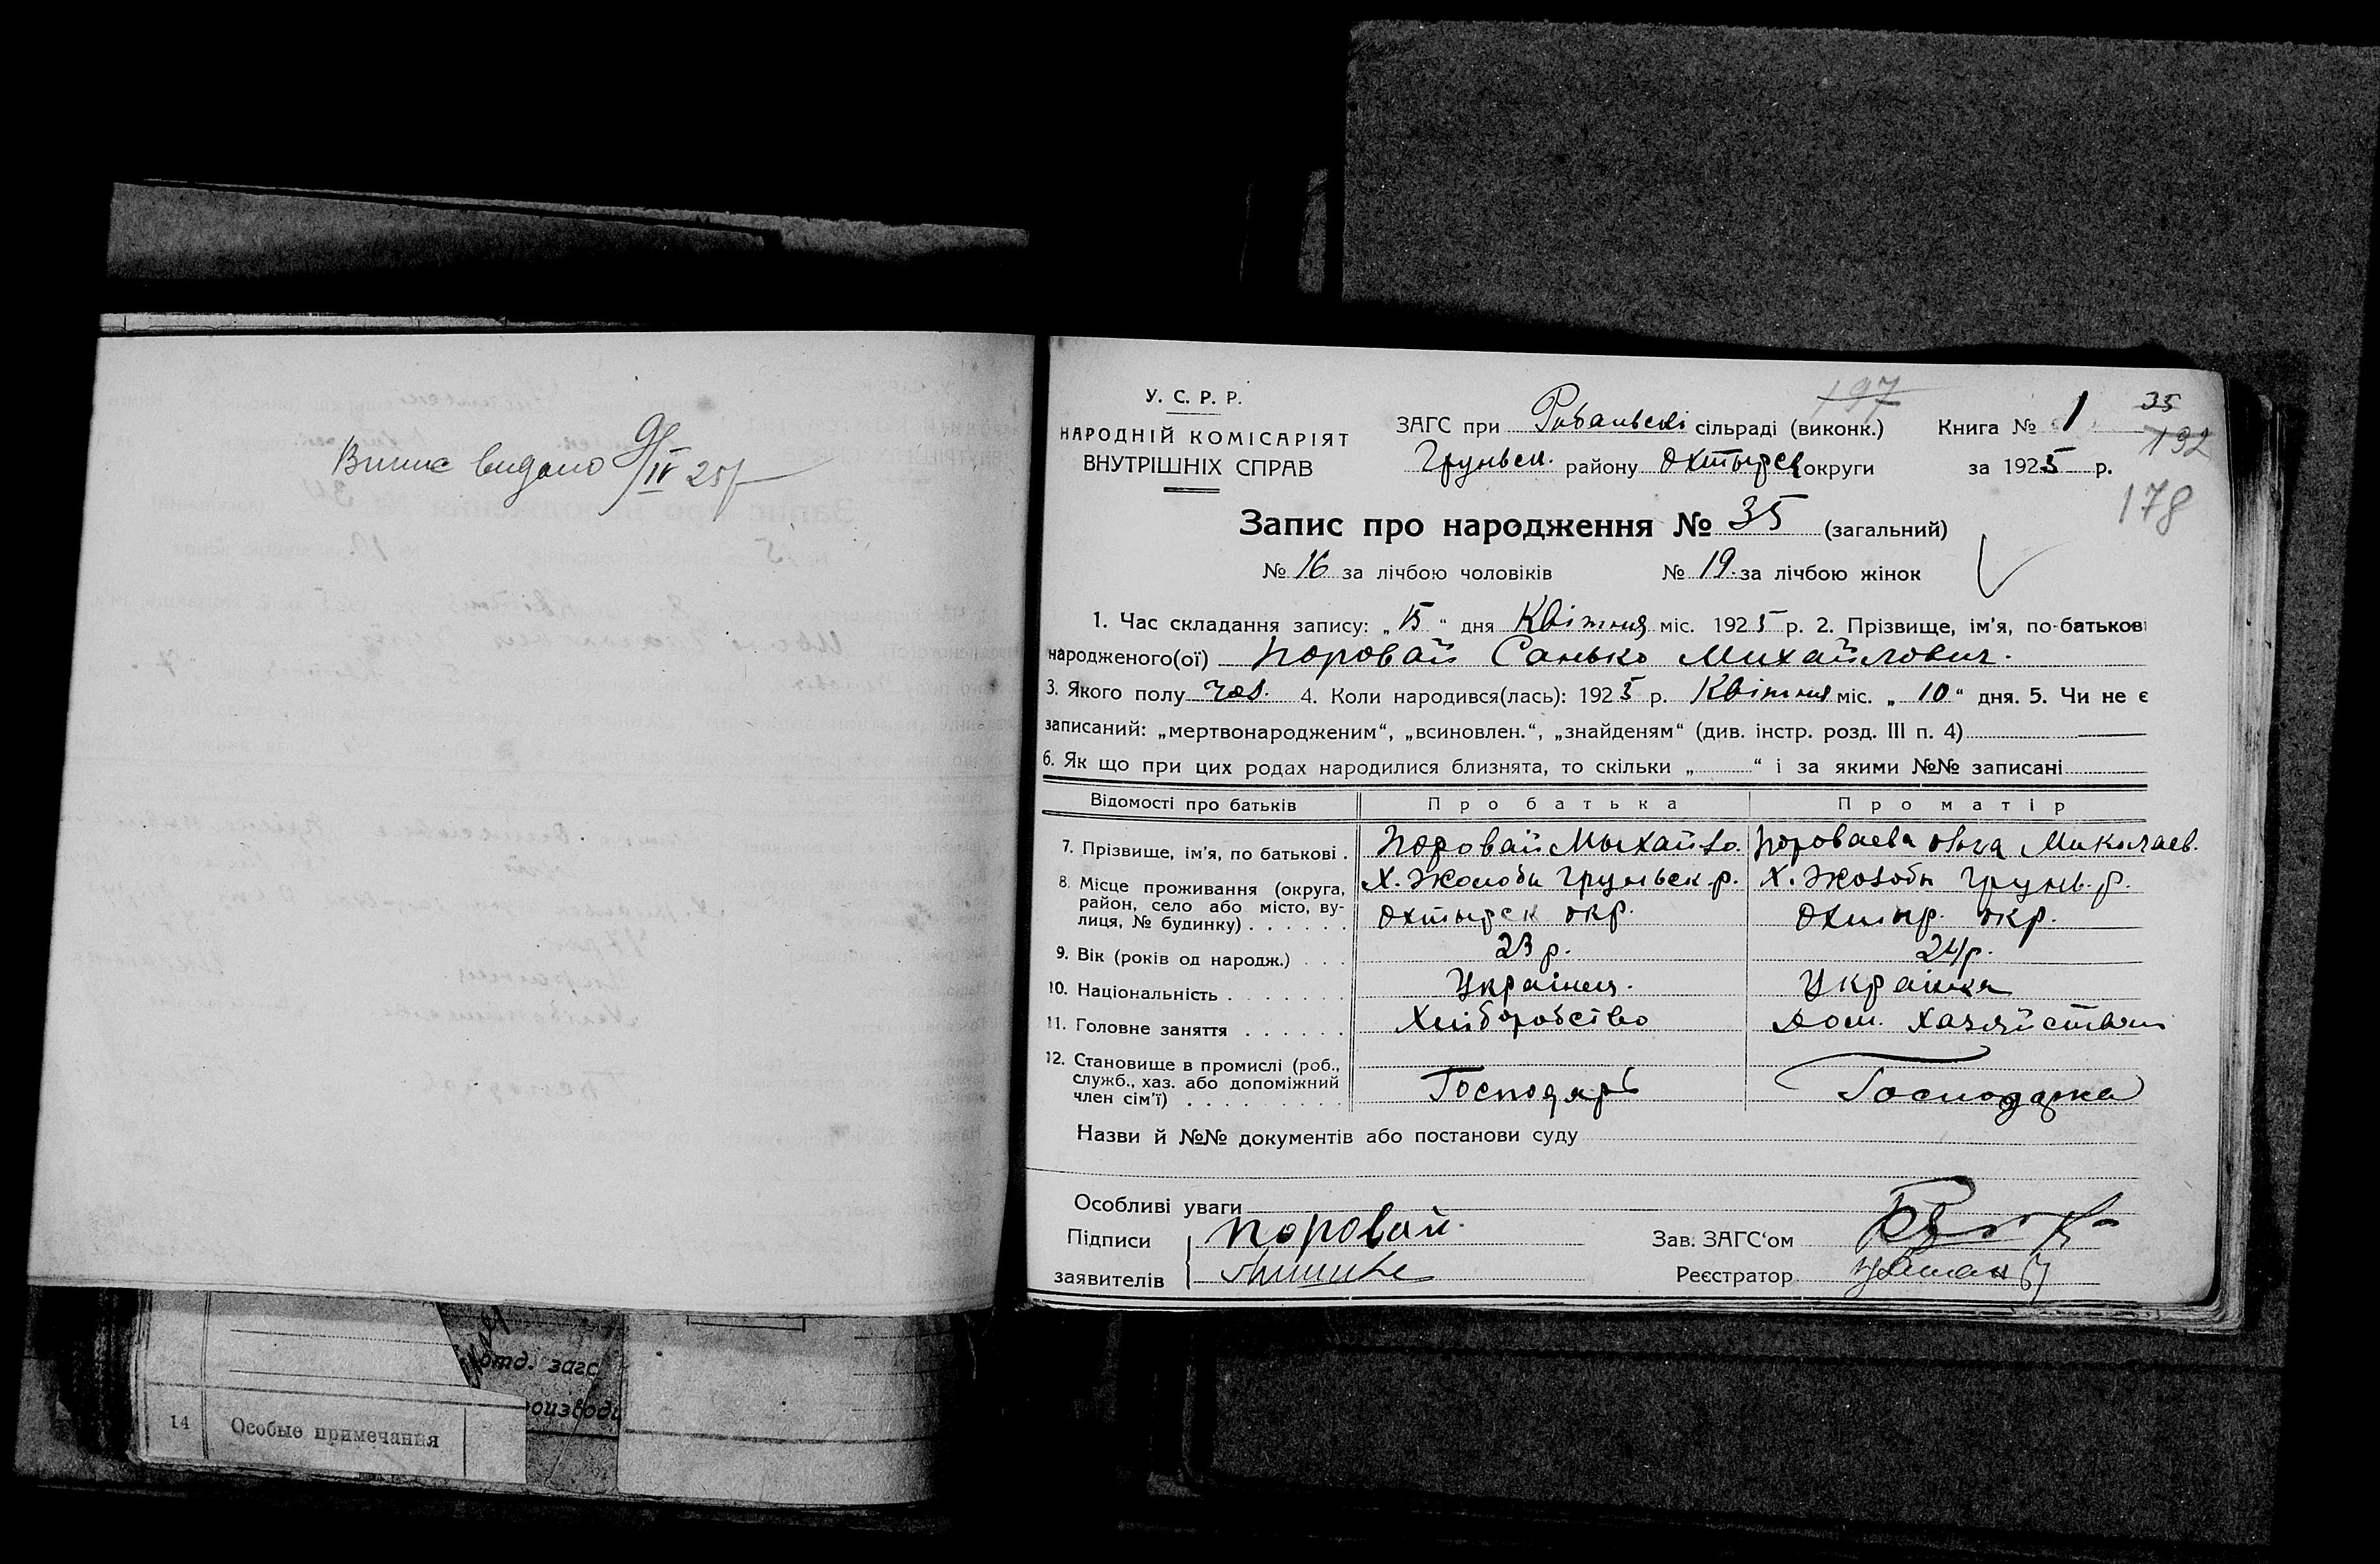 Випис видано 9/IV 25 р
отд. загс
14 Особые примечания
У. С. Р. Р.
НАРОДНІЙ КОМІСАРІЯТ
ВНУТРІШНІХ СПРАВ
197
ЗАГС при Рибальскі сільраді (виконк.)
Груньск. району Охтырск округи
Книга № 1
35
192
за 1925 р.
178
Запис про народження № 35 (загальний)
№ 16 за лічбою чоловіків № 19 за лічбою жінок
1. Час складання запису: „15“ дня Квітня міс. 1925 р. 2. Прізвище, ім'я, по-батькові
народженого(ої) Поровай Санько Михайлович.
3. Якого полу чол. 4. Коли народився(лась): 1925 р. Квітня міс. „10“ дня. 5. Чи не є
записаний: „мертвонародженим“, „всиновлен.“, „знайденям“ (див. інстр. розд. III п. 4)
6. Як що при цих родах народилися близнята, то скільки „ “ і за якими №№ записані
Відомості про батьків Про батька Про матір
7. Прізвище, ім'я, по батькові . Поровай Мыхайло. Пороваева Миколаев.
8. Місце проживання (округа, район, село або місто, вулиця, № будинку) . . . . . . Х. Жолоби Груньск. р. Охтырск окр. Х. Жолоби Грунь. р. Охтыр. окр.
9. Вік (років од народж.) . . . 23 р. 24 р.
10. Національність . . . . . . . Українец. Українка
11. Головне заняття . . . . . . Хліборобство Дом. хазяйством
12. Становище в промислі (роб., служб., хаз. або допоміжний член сім'ї) . . . . . . . . . Господарь Господарка
Назви й №№ документів або постанови суду
Особливі уваги
Підписи Поровай.
заявителів
Зав. ЗАГС'ом
Реєстратор